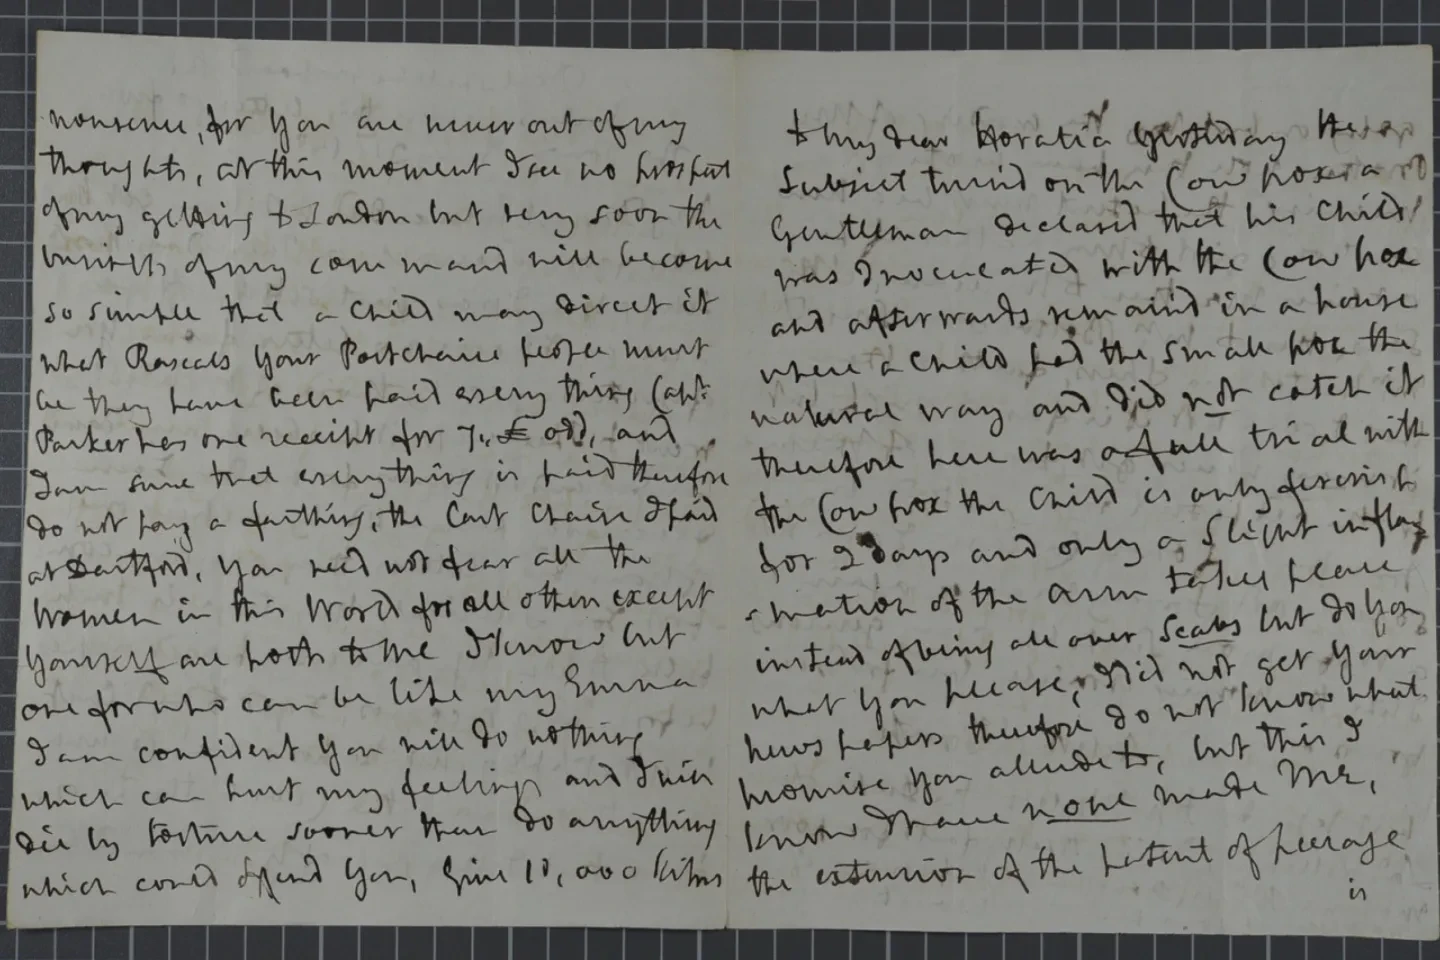 nonsence, for you are never out of my
thoughts, at this moment I see no prospect
of my getting to London but very soon the
business of my command will become
so simple that a Child may direct it
what Rascals your Postchaise people must
be they have been paid every thing Capt:
Parker has one receipt for 7,, £ odd, and
I am sure that everything is paid therefore
do not pay a farthing, the Cart Chaise I paid
at Dartford, You need not fear all the
Women in this World for all others except
yourself are pests to me I know but
one for who can be like my Emma
I am confident you will do nothing
which can hurt my feelings and I will
die by torture sooner than do anything
which could offend you, Give 10,000 Kisses
to my dear Horatia Yesterday the
Subject turn'd on the Cow pox a
Gentleman declared that his Child
was Inoculated with the Cow pox
and afterwards remain'd in a house
where a Child had the Small pox the
natural way and did not catch it
therefore here was a full trial with
the Cow pox the Child is only feverish
for 2 days and only a Slight inflam
mation of the arm takes place
instead of being all over Scabs but do you
what you please, I did not get your
newspapers therefore do not know what
promise you allude to, but this I
know I have none made Me,
the extension of the patent of peerage
is